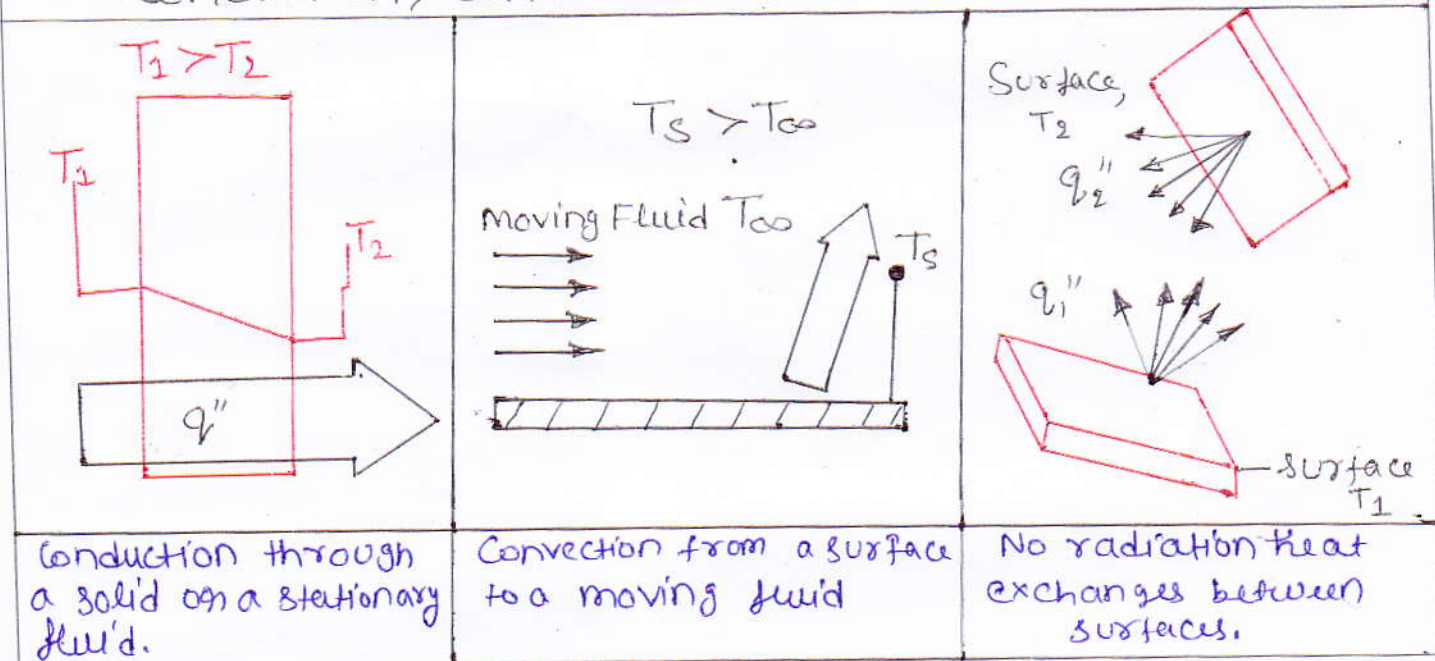 T1 > T2
T1
T2
q"
Ts > T∞
moving Fluid T∞
Ts
Surface,
T2
q2"
q1"
surface
T1
Conduction through
a solid or a stationary
fluid.
Convection from a surface
to a moving fluid
No radiation heat
exchanges between
surfaces.